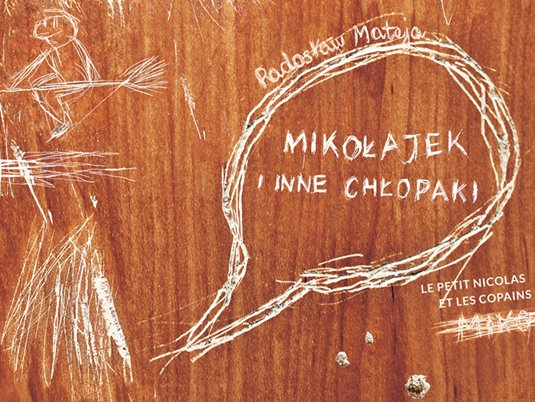 Radosław Mateja
MIKOŁAJEK
I INNE CHŁOPAKI
LE PETIT NICOLAS
ET LES COPAINS